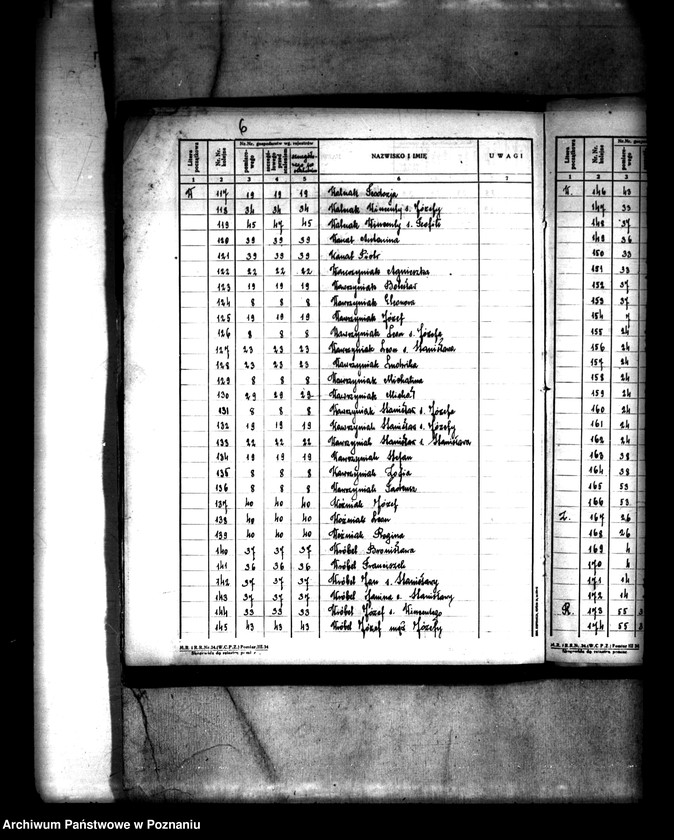 6
Litera początkowa
Nr. Nr. kolejne
Nr. Nr. gospodarstw wg. rejestrów
NAZWISKO I IMIĘ
UWAGI
1 2 3 4 5 6 7
117 19 19 19
118 34 34 34 Wincenty s. Józefy
119 45 47 45 Wincenty s. Teofili
120 39 39 39 Antonina
121 39 39 39 Piotr
122 22 22 22 Wawrzyniak Agnieszka
123 19 19 19 Wawrzyniak Bolesław
124 8 8 8 Wawrzyniak Eleonora
125 19 19 19 Wawrzyniak Józef
126 8 8 8 Wawrzyniak Leon s. Józefa
127 23 23 23 Wawrzyniak Leon s. Stanisława
128 23 23 23 Wawrzyniak Ludwika
129 8 8 8 Wawrzyniak Michalina
130 29 29 29 Wawrzyniak Michał
131 8 8 8 Wawrzyniak Stanisław s. Józefa
132 19 19 19 Wawrzyniak Stanisław s. Józefy
133 22 22 22 Wawrzyniak Stanisław s. Stanisława
134 19 19 19 Wawrzyniak Stefan
135 8 8 8 Wawrzyniak Zofia
136 8 8 8 Wawrzyniak Tadeusz
137 40 40 40 Woźniak Józef
138 40 40 40 Woźniak Leon
139 40 40 40 Woźniak Regina
140 37 37 37 Wróbel Bronisława
141 36 36 36 Wróbel Franciszek
142 37 37 37 Wróbel Jan s. Stanisławy
143 37 37 37 Wróbel Janina s. Stanisławy
144 33 33 33 Wróbel Józef s. Wincentego
145 43 43 43 Wróbel Józef mąż Józefy
M.R. i R.R. Nr 34 (W.C.P.Z.) Pomiar III 34
Litera początkowa
Nr. Nr. kolejne
1 2 3
W. 146 43
147 33
148 37
149 36
150 33
151 33
152 37
153 37
154 7
155 24
156 24
157 24
158 24
159 24
160 24
161 24
162 24
163 38
164 38
165 53
166 53
Z. 167 26
168 26
169 4
170 4
171 14
172 14
R. 173 55
174 55
M.R. i R.R. Nr 34 (W.C.P.Z.) Pomiar III 34
Archiwum Państwowe w Poznaniu